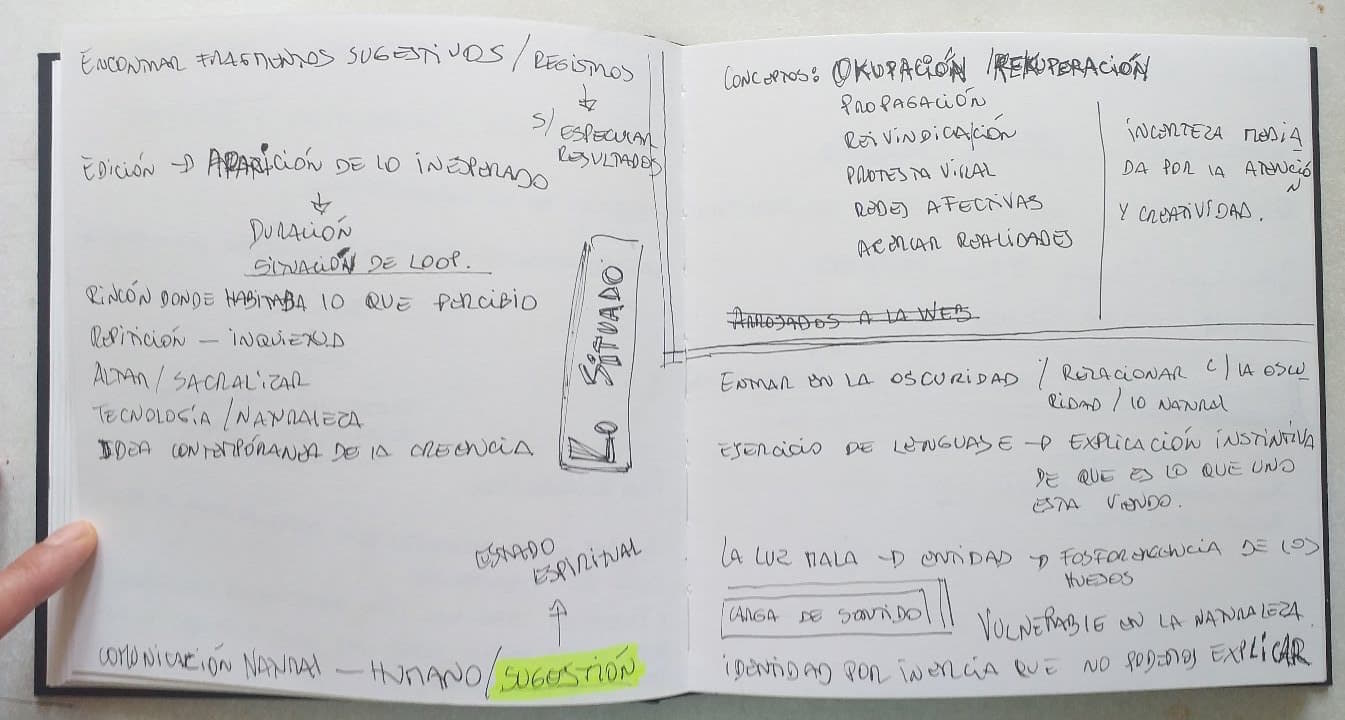 ENCONTRAR FRAGMENTOS SUGESTIVOS / REGISTROS
S/ ESPECULAR
RESULTADOS
EDICIÓN → APARICIÓN DE LO INESPERADO
DURACIÓN
SITUACIÓN DE LOOP.
RINCÓN DONDE HABITABA LO QUE PERCIBIO
REPITICIÓN — INQUIETUD
ALTAR / SACRALIZAR
TECNOLOGÍA / NATURALEZA
IDEA CONTEMPÓRANEA DE LA CREENCIA
LO SITUADO
ESTADO
ESPIRITUAL
COMUNICACIÓN NATURAL — HUMANO / SUGESTIÓN
CONCEPTOS: OKUPACIÓN / REKUPERACIÓN
PROPAGACIÓN
REIVINDICACIÓN
PROTESTA VIRAL
REDES AFECTIVAS
ACERCAR REALIDADES
INCERTEZA MEDIA
DA POR LA ATENCIÓ
N
Y CREATIVIDAD.
ARROJADOS A LA WEB
ENTRAR EN LA OSCURIDAD / RELACIONAR C/ LA OSCU
RIDAD / LO NATURAL
EJERCICIO DE LENGUAJE → EXPLICACIÓN INSTINTIVA
DE QUE ES LO QUE UNO
ESTA VIENDO.
LA LUZ MALA → ENTIDAD → FOSFORECENCIA DE LOS
HUESOS
CARGA DE SENTIDO
VULNERABLE EN LA NATURALEZA
IDENTIDAD POR INERCIA QUE NO PODEMOS EXPLICAR